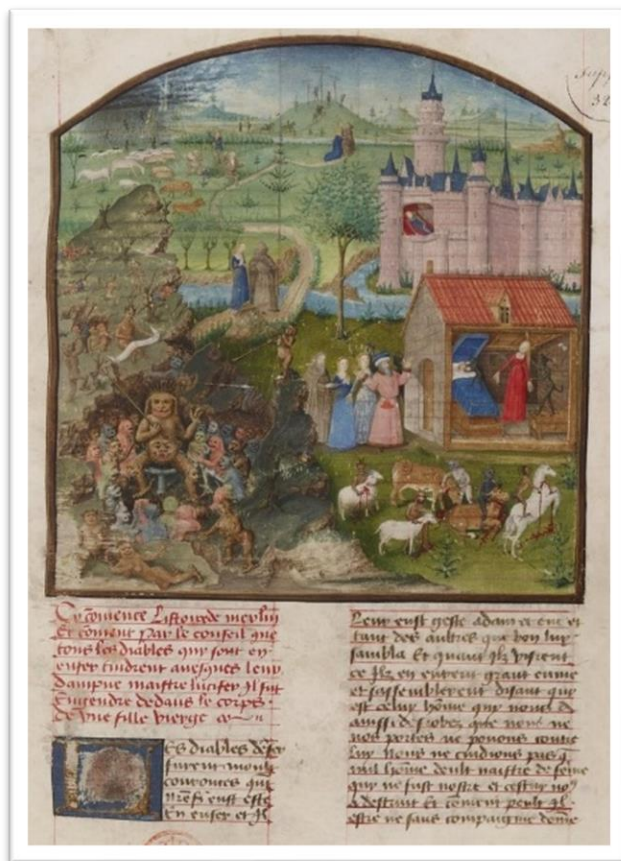 Cy comence Listoire de merlin
Et coment par le conseil que
tous les diables qui sont en
enfer tindrent avesques leur
dampne maistre lucifer Il fut
Engendre dedans le corps
de une fille vierge
Es diables
furent moult
courouces
enfer et Il
Leur eust geste adam et eve et
tant des aultres que bon luy
sambla Et quant Ilz virent
ce Ilz en eurent grant
et sassemblerent disant qui
est celuy home qui nous
nos portes ne povons contre
luy Nous ne cuidions pas
nul home deult naistre de feme
qui ne fust nostre et cestuy no⁹
destruit Et coment peult Il
estre ne sans compaignie dome